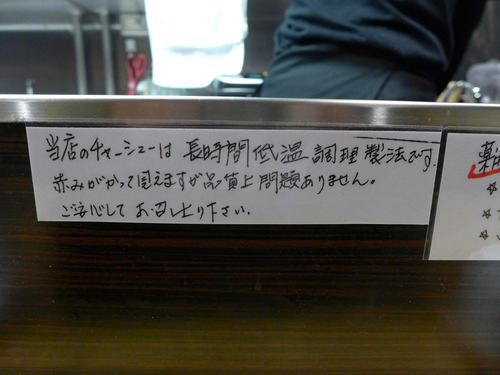 当店のチャーシューは 長時間低温調理製法です。
赤みがかって見えますが品質上問題ありません。
ご安心して お召し上り下さい。